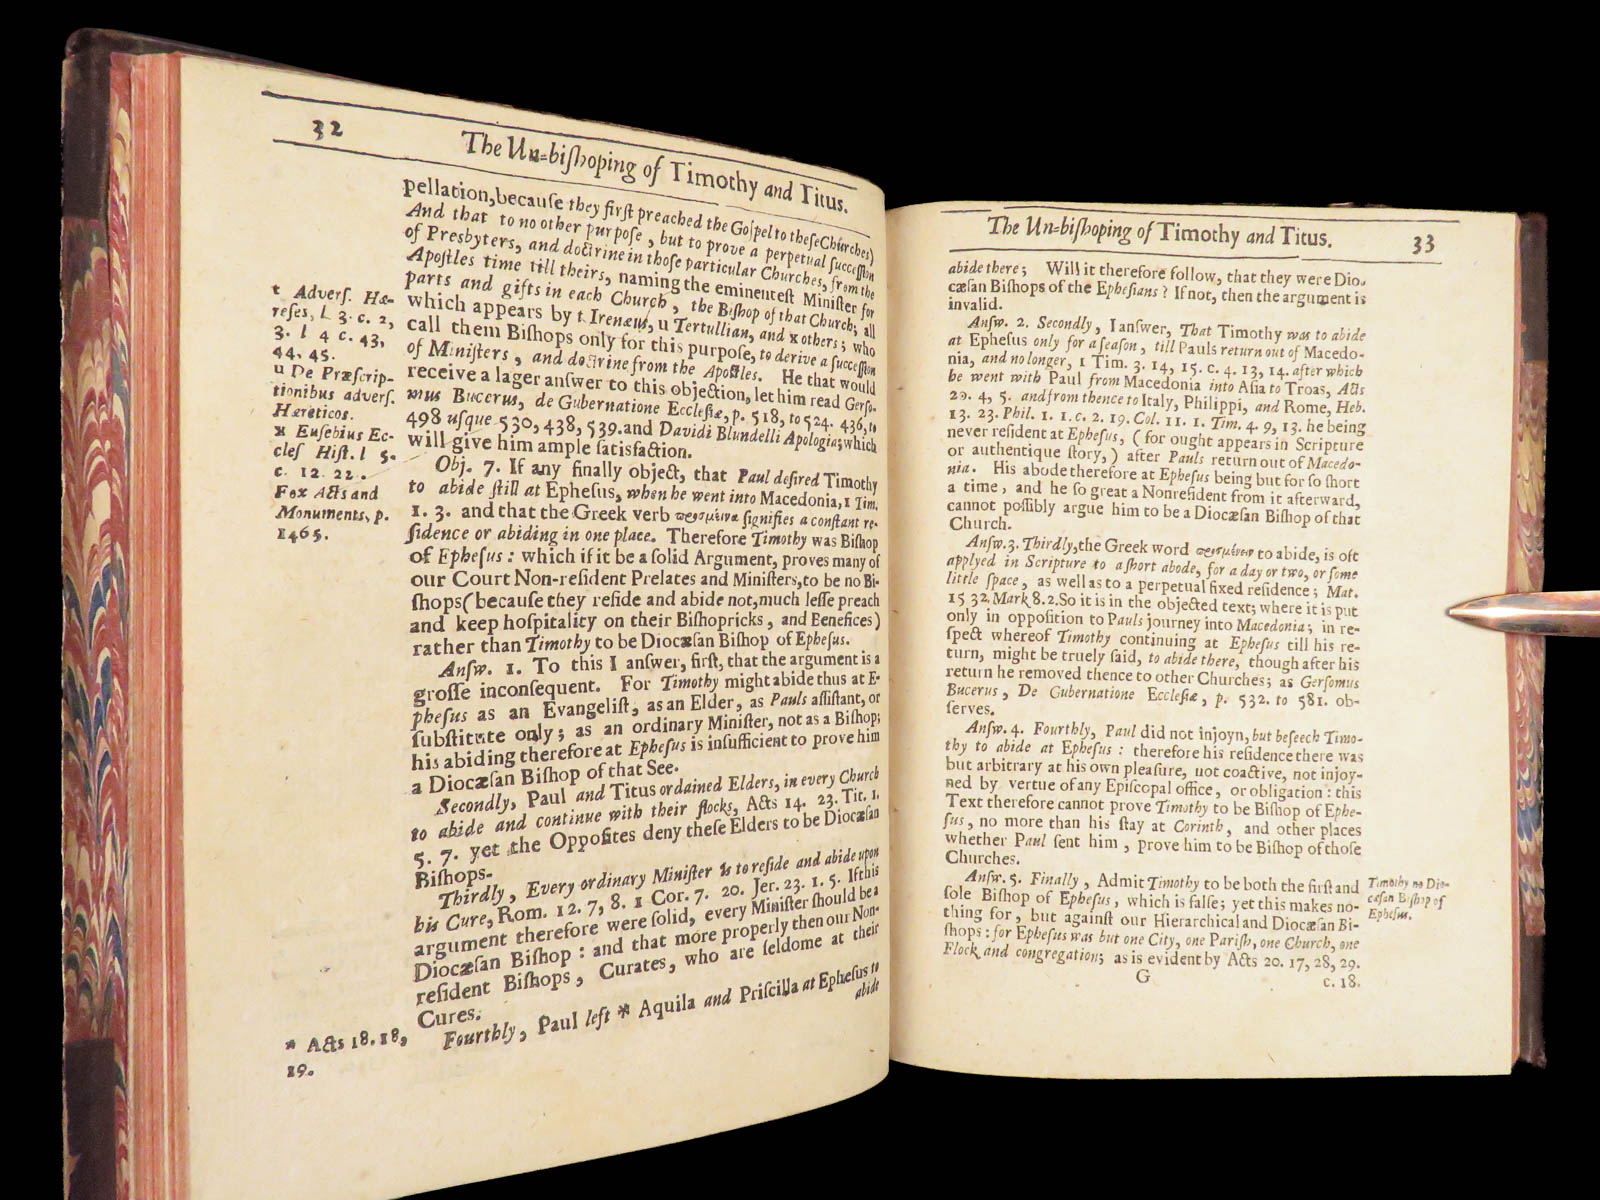 32
The Un-biſhoping of Timothy and Titus.
pellation, becauſe they firſt preached the Goſpel to theſe Churches)
And that to no other purpoſe, but to prove a perpetual ſucceſſion
of Presbyters, and doctrine in thoſe particular Churches, from the
Apoſtles time till theirs, naming the eminenteſt Miniſter for
parts and gifts in each Church, the Biſhop of that Church; all
which appears by t Irenæus, u Tertullian, and x others; who
call them Biſhops only for this purpoſe, to derive a ſucceſſion
of Miniſters, and doctrine from the Apoſtles. He that would
receive a larger anſwer to this objection, let him read Gerſo-
mus Bucerus, de Gubernatione Eccleſiæ, p. 518, to 524. 436, to
498 uſque 530, 438, 539. and Davidi Blundelli Apologia; which
will give him ample ſatisfaction.
t Adverſ. Hæ-
reſes, l. 3. c. 2,
3. l 4 c. 43,
44. 45.
u De Præſcrip-
tionibus adverſ.
Hæreticos.
x Euſebius Ec-
cleſ Hiſt. l 5.
c. 12. 22.
Fox Acts and
Monuments, p.
1465.
Obj. 7. If any finally object, that Paul deſired Timothy
to abide ſtill at Epheſus, when he went into Macedonia, 1 Tim.
1. 3. and that the Greek verb προσμεῖναι ſignifies a conſtant re-
ſidence or abiding in one place. Therefore Timothy was Biſhop
of Epheſus: which if it be a ſolid Argument, proves many of
our Court Non-reſident Prelates and Miniſters, to be no Bi-
ſhops (becauſe they reſide and abide not, much leſſe preach
and keep hoſpitality on their Biſhopricks, and Benefices)
rather than Timothy to be Diocæſan Biſhop of Epheſus.
Anſw. 1. To this I anſwer, firſt, that the argument is a
groſſe inconſequent. For Timothy might abide thus at E-
pheſus as an Evangeliſt, as an Elder, as Pauls aſſiſtant, or
ſubſtitute only; as an ordinary Miniſter, not as a Biſhop;
his abiding therefore at Epheſus is inſufficient to prove him
a Diocæſan Biſhop of that See.
Secondly, Paul and Titus ordained Elders, in every Church
to abide and continue with their flocks, Acts 14. 23. Tit. 1.
5. 7. yet the Oppoſites deny theſe Elders to be Diocæſan
Biſhops.
Thirdly, Every ordinary Miniſter is to reſide and abide upon
his Cure, Rom. 12. 7, 8. 1 Cor. 7. 20. Jer. 23. 1. 5. If this
argument therefore were ſolid, every Miniſter ſhould be a
Diocæſan Biſhop: and that more properly then our Non-
reſident Biſhops, Curates, who are ſeldome at their
Cures.
Fourthly, Paul left * Aquila and Priſcilla at Epheſus to
abide
* Acts 18. 18,
19.
The Un-biſhoping of Timothy and Titus.
33
abide there; Will it therefore follow, that they were Dio-
cæſan Biſhops of the Epheſians? If not, then the argument is
invalid.
Anſw. 2. Secondly, I anſwer, That Timothy was to abide
at Epheſus only for a ſeaſon, till Pauls return out of Macedo-
nia, and no longer, 1 Tim. 3. 14, 15. c. 4. 13, 14. after which
he went with Paul from Macedonia into Aſia to Troas, Acts
20. 4, 5. and from thence to Italy, Philippi, and Rome, Heb.
13. 23. Phil. 1. 1. c. 2. 19. Col. 11. 1. Tim. 4. 9, 13. he being
never reſident at Epheſus, (for ought appears in Scripture
or authentique ſtory,) after Pauls return out of Macedo-
nia. His abode therefore at Epheſus being but for ſo ſhort
a time, and he ſo great a Nonreſident from it afterward,
cannot poſſibly argue him to be a Diocæſan Biſhop of that
Church.
Anſw. 3. Thirdly, the Greek word προσμένειν to abide, is oft
applyed in Scripture to a ſhort abode, for a day or two, or ſome
little ſpace, as well as to a perpetual fixed reſidence; Mat.
15 32. Mark 8. 2. So it is in the objected text; where it is put
only in oppoſition to Pauls journey into Macedonia; in re-
ſpect whereof Timothy continuing at Epheſus till his re-
turn, might be truely ſaid, to abide there, though after his
return he removed thence to other Churches; as Gerſomus
Bucerus, De Gubernatione Eccleſiæ, p. 532. to 581. ob-
ſerves.
Anſw. 4. Fourthly, Paul did not injoyn, but beſeech Timo-
thy to abide at Epheſus: therefore his reſidence there was
but arbitrary at his own pleaſure, not coactive, not injoy-
ned by vertue of any Epiſcopal office, or obligation: this
Text therefore cannot prove Timothy to be Biſhop of Ephe-
ſus, no more than his ſtay at Corinth, and other places
whether Paul ſent him, prove him to be Biſhop of thoſe
Churches.
Anſw. 5. Finally, Admit Timothy to be both the firſt and
ſole Biſhop of Epheſus, which is falſe; yet this makes no-
thing for, but againſt our Hierarchical and Diocæſan Bi-
ſhops: for Epheſus was but one City, one Pariſh, one Church, one
Flock and congregation; as is evident by Acts 20. 17, 28, 29.
Timothy no Dio-
cæſan Biſhop of
Epheſus.
G
c. 18.